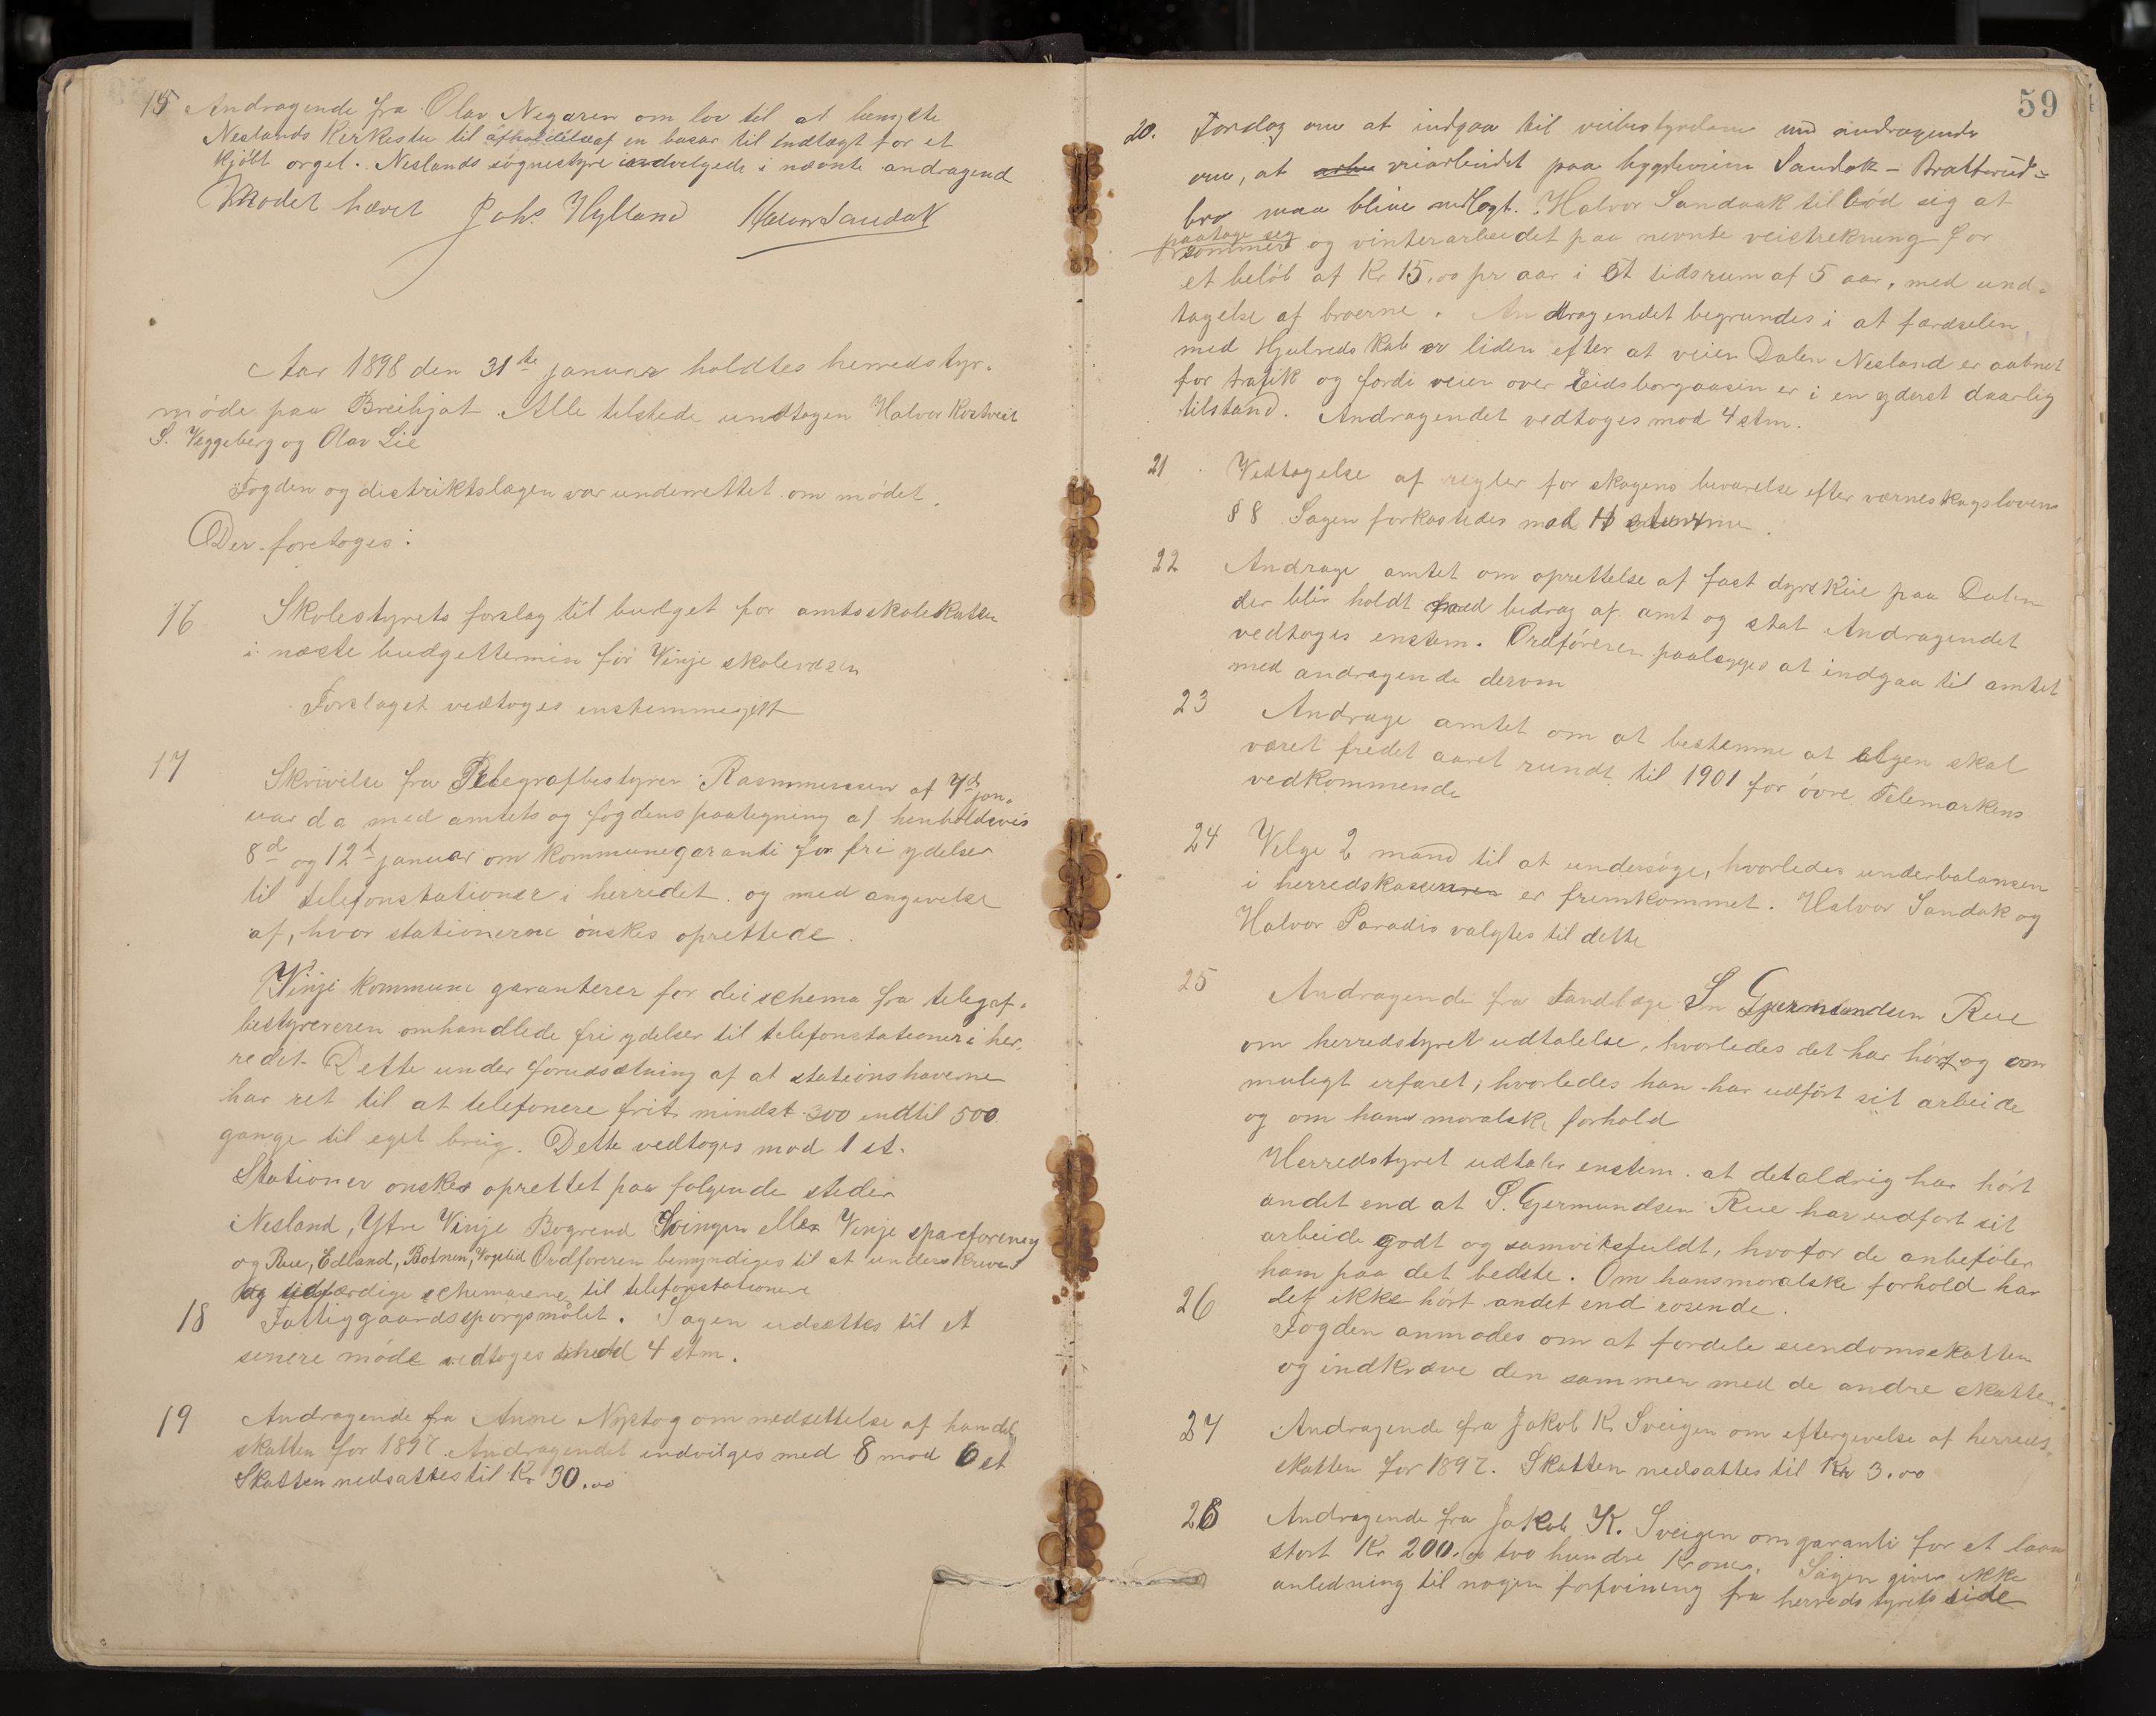 15 Andragende fra Olav Negaren om lov til at benytte
Neslands Kirkestu til afholdelse af en basar til indtægt for et
kjöbt orgel. Neslands sognestyre indvilgede i nævnte andragend
Mødet hævet Johs Hylland Halvor Sandok
Aar 1898 den 31te januar holdtes herredstyr-
möde paa Breihjat. Alle tilstede undtagen Halvor Kostveit
S. Veggeberg og Olav Lie
Fogden og distriktslægen var underrettet om mödet.
Der foretoges:
16 Skolestyrets forslag til budget for amtsskolekassen
i næste budgettermin för Vinje skolevæsen
Forslaget vedtoges enstemmegitt
17 Skrivelse fra Telegrafbestyrer Rasmussen af 7de jan-
uar d a med amtets og fogdens paategning af henholdsvis
8de og 12te januar om kommunegaranti for fri ydelser
til telefonstationer i herredet og med angivelse
af, hvor stationerne önskes oprettede.
Vinje kommune garanterer for de i schema fra telegaf-
bestyrereren omhandlede fri ydelser til telefonstationer i her-
redet. Dette under forudsætning af at stationshaverne
har ret til at telefonere frit mindst 300 indtil 500
gange til eget brug. Dette vedtoges mod 1 st.
Stationer onskes oprettet paa folgende steder
Nesland, Ytre Vinje Bogrend Svingen eller Vinje spareforening
og Rue, Edland, Botnen, Vogslid Ordföreren bemyndiges til at underskrive
og udfærdige schemaerne til telefonstationene
18 Fattiggaardsspörgsmålet. Sagen udsættes til et
senere möde vedtoges mod 4 stm.
19 Andragende fra Anne Nystog om nedsettelse af handels
skatten for 1897. Andragendet indvilges med 8 mod 6 st
Skatten nedsattes til Kr 30.00
59
20. Forslag om at indgaa til veibestyrelsen med andragende
om, at arbe veiarbeidet paa bygdeveien Sandok - Bratterud-
bro maa blive nedlagt. Halvor Sandaak tilböd sig at
paatage seg
sommer og vinterarbeidet paa nevnte veistrekning for
et belöb af Kr 15.00 pr aar i et tidsrum af 5 aar, med und-
tagelse af broerne. Andragendet begrundes i at færdselen
med Hjulredskab er liden efter at veien Dalen Nesland er aabnet
for trafik og fordi veien over Eidsborgaasen er i en yderst daarlig
tilstand. Andragendet vedtoges mod 4 stm.
21 Vedtagelse af regler for skogens bevarelse efter værneskogslovens
§ 8. Sagen forkastedes mod
22 Andrage amtet om oprettelse af fast dyrskue paa Dalen
der blir holdt med bedrag af amt og stat Andragendet
vedtoges enstem. Ordföreren paalægges at indgaa til amtet
med andragende derom
23 Andrage amtet om at bestemme at elgen skal
været fredet aaret rundt til 1901 for övre Telemarkens
vedkommende
24 Velge 2 mand til at undersöge, hvorledes underbalansen
i herredskassen er fremkommet. Halvor Sandak og
Halvor Paradis valgtes til dette
25 Andragende fra Tandlæge S Gjermundsen Rue
om herredstyret udtalelse, hvorledes det har hört og om
muligt erfaret, hvorledes han har udfört sit arbeide
og om hans moralske forhold
Herredstyret udtaler enstem. at det aldrig har hört
andet end at S. Gjermundsen Rue har udfort sit
arbeide godt og samvitsfuldt, hvofor de anbefoler
ham paa det bedste. Om hans moralske forhold har
det ikke hört andet end rosende.
26 Fogden anmodes om at fordele eiendomsskatten
og indkræve den sammen med de andre skatter.
27 Andragende fra Jakob K Sveigen om eftergivelse af herreds-
skatten for 1897. Skatten nedsattes til Kr 3.00
28 Andragende fra Jakob K. Sveigen om garanti for et laan
stort Kr 200.00 tvo hundre Kroner. Sagen giver ikke
anledning til nogen forfoining fra herredstyrets side